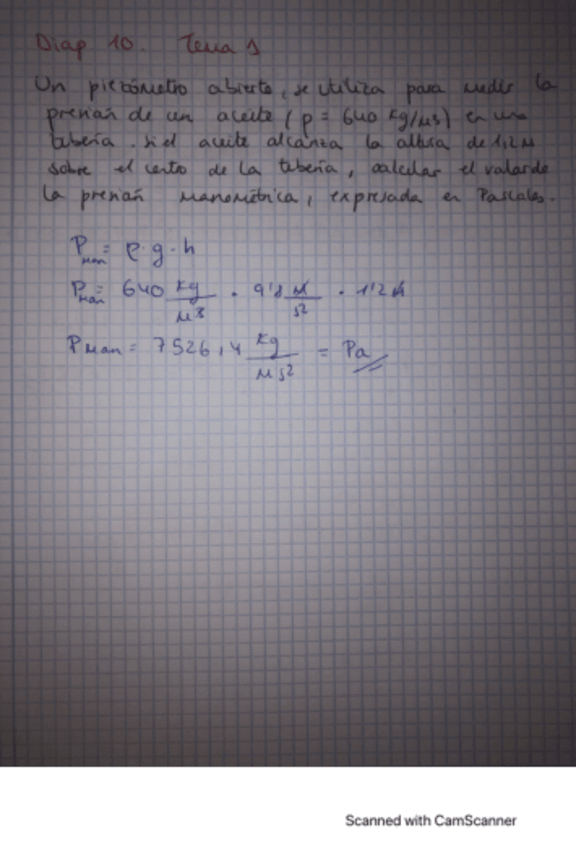 Diap 10. Tema 1
Un piezómetro abierto, se utiliza para medir la
presión de un aceite (ρ = 640 kg/m3) en una
tubería. Si el aceite alcanza la altura de 1,2 m
sobre el centro de la tubería, calcular el valor de
la presión manométrica, expresada en Pascales.
Pman = ρ·g·h
Pman = 640 kg/m3 · 9'8 m/s2 · 1'2 m
Pman = 7526,4 kg/m s2 = Pa
Scanned with CamScanner